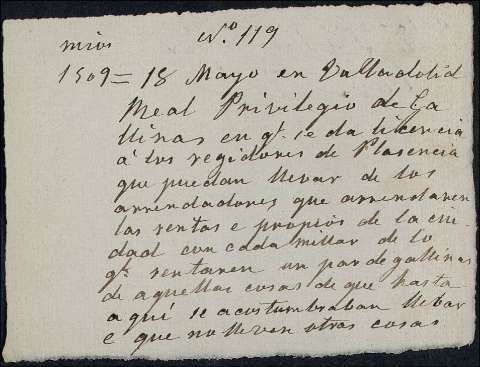 mios Nº 119
1509 = 18 Mayo en Valladolid
Real Privilegio de Ga
llinas en qᵉ se da licencia
á los regidores de Plasencia
que puedan llevar de los
arrendadores que arrendaren
las rentas e propios de la ciu
dad con cada millar de lo
qᵉ rentaren un par de gallinas
de aquellas cosas de que hasta
aqui se acostumbraban llebar
e que no lleven otras cosas